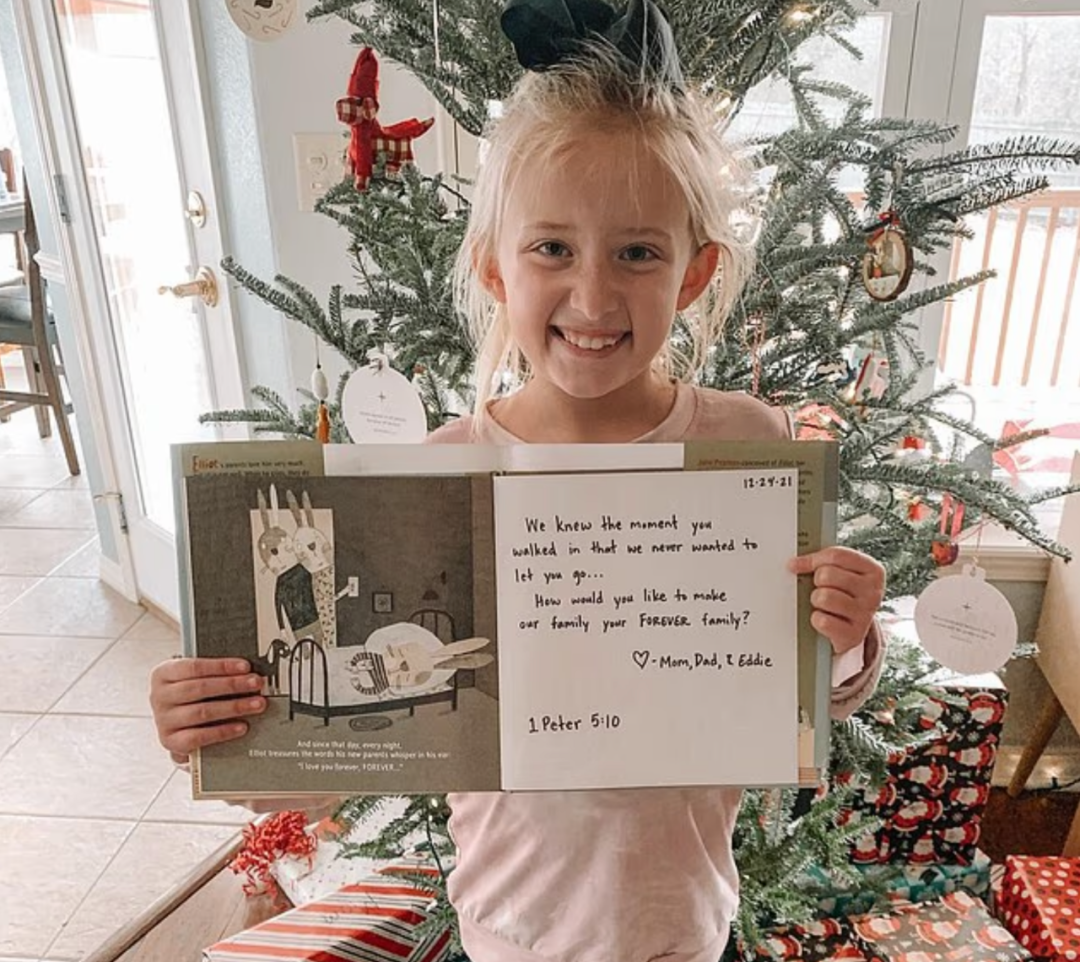 Elliot's parents love him very much.
12·24·21
We knew the moment you
walked in that we never wanted to
let you go...
How would you like to make
our family your FOREVER family?
♡ - Mom, Dad, & Eddie
1 Peter 5:10
And since that day, every night,
Elliot treasures the words his new parents whisper in his ear:
"I love you forever, FOREVER..."